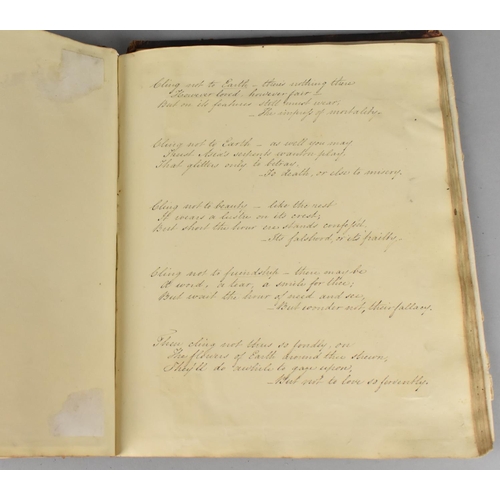 Cling not to Earth – theres nothing there
However loved, however fair
But on its features still must wear
– The impress of mortality.
Cling not to Earth – as well you may
Trust Asia's serpent's wanton play,
That glitters only to betray
– To death, or else to misery.
Cling not to beauty – like the rest
It wears a lustre on its crest;
But short the hour ere stands confess'd,
– Its falsehood, or its frailty.
Cling not to friendship – there may be
A word, a tear, a smile for thee;
But wait the hour of need and see,
– But wonder not, their fallacy.
Then cling not thus so fondly, on
The flowers of Earth around thee strewn;
They'll do awhile to gaze upon,
– But not to love so fervently.